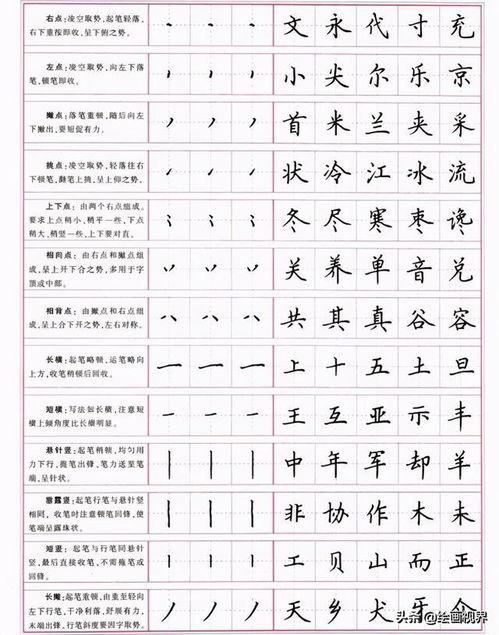 右点：凌空取势，起笔轻落，
右下重按即收，呈下俯之势。
文 永 代 寸 充
左点：凌空取势，向左下落
笔，顿笔即收。
小 尖 尔 乐 京
撇点：落笔重顿，随后向左
下撇出，要短促有力。
首 米 兰 夹 采
挑点：凌空取势，轻落往右
下顿笔，翻笔上挑，呈上仰之势。
状 冷 江 冰 流
上下点：由两个右点组成。
要求上点稍小、稍平一些，下点
稍大、稍竖一些，上下要对直。
冬 尽 寒 枣 谗
相向点：由右点和撇点组
成，呈上开下合之势，多用于字
顶或中部。
关 养 单 音 兑
相背点：由撇点和右点组
成，呈上合下开之势，左右对称。
共 其 真 谷 容
长横：起笔略顿，运笔略向
上方，收笔稍顿后回收。
上 十 五 土 旦
短横：写法如长横，注意短
横上倾角度比长横明显。
王 互 亚 示 丰
悬针竖：起笔稍顿，均匀用
力下行，拖笔出锋，笔力送至笔
端，呈针状。
中 年 军 却 羊
垂露竖：起笔行笔与悬针竖
相同，收笔时注意顿笔回锋，使
笔端呈露珠状。
非 协 作 木 未
短竖：起笔与行笔同悬针
竖，最后直接收笔，不需拖笔或
回锋。
工 贝 山 而 正
长撇：起笔重顿，由重至轻向
左下行笔，干净利落，舒展有力，
末端出锋，行笔斜度要因字取势。
天 乡 犬 牙 介
头条@绘画视界